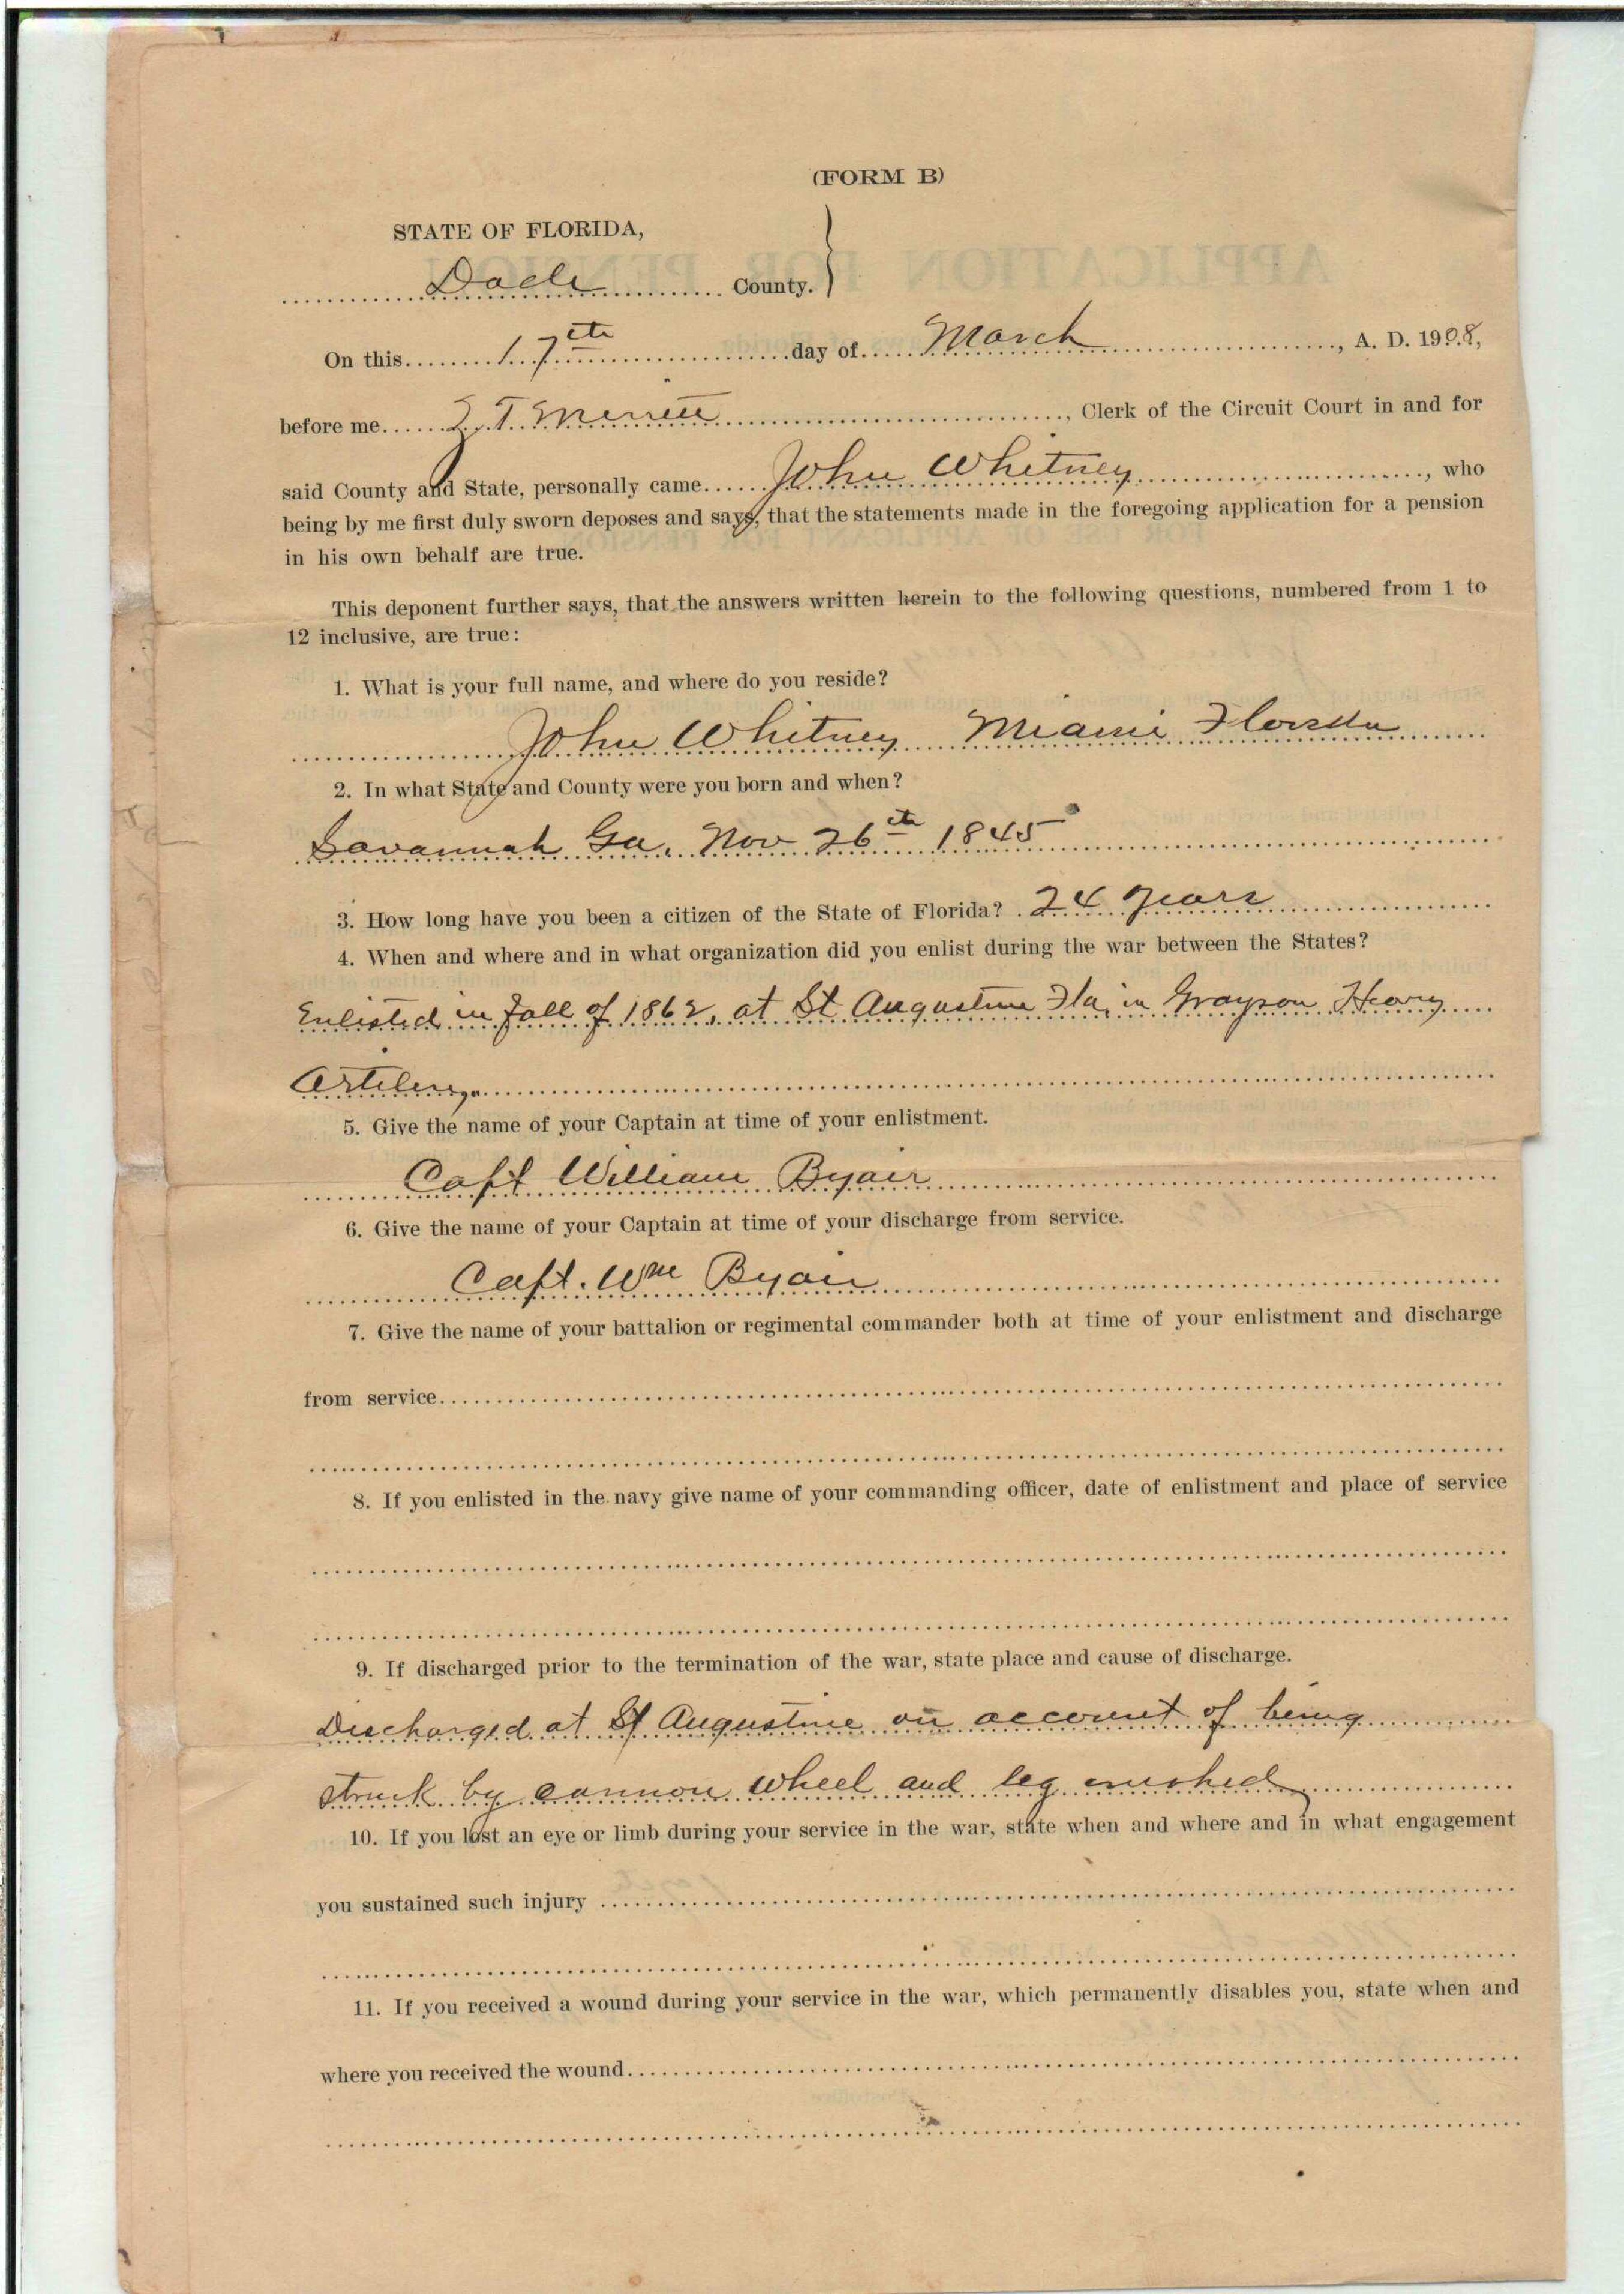 (FORM B)
STATE OF FLORIDA,
Dade County.
On this 17th day of March, A. D. 1908,
before me Z. T. Merritt, Clerk of the Circuit Court in and for
said County and State, personally came John Whitney, who
being by me first duly sworn deposes and says, that the statements made in the foregoing application for a pension
in his own behalf are true.
This deponent further says, that the answers written herein to the following questions, numbered from 1 to
12 inclusive, are true:
1. What is your full name, and where do you reside?
John Whitney Miami Florida
2. In what State and County were you born and when?
Savannah Ga. Nov 26th 1845
3. How long have you been a citizen of the State of Florida? 24 years
4. When and where and in what organization did you enlist during the war between the States?
Enlisted in Fall of 1862, at St Augustine Fla, in Grayson Heavy
Artilery.
5. Give the name of your Captain at time of your enlistment.
Capt William Byair
6. Give the name of your Captain at time of your discharge from service.
Capt. Wm Byair
7. Give the name of your battalion or regimental commander both at time of your enlistment and discharge
from service
8. If you enlisted in the navy give name of your commanding officer, date of enlistment and place of service
9. If discharged prior to the termination of the war, state place and cause of discharge.
Discharged at St Augustine on account of being
struck by cannon wheel and leg crushed
10. If you lost an eye or limb during your service in the war, state when and where and in what engagement
you sustained such injury
11. If you received a wound during your service in the war, which permanently disables you, state when and
where you received the wound